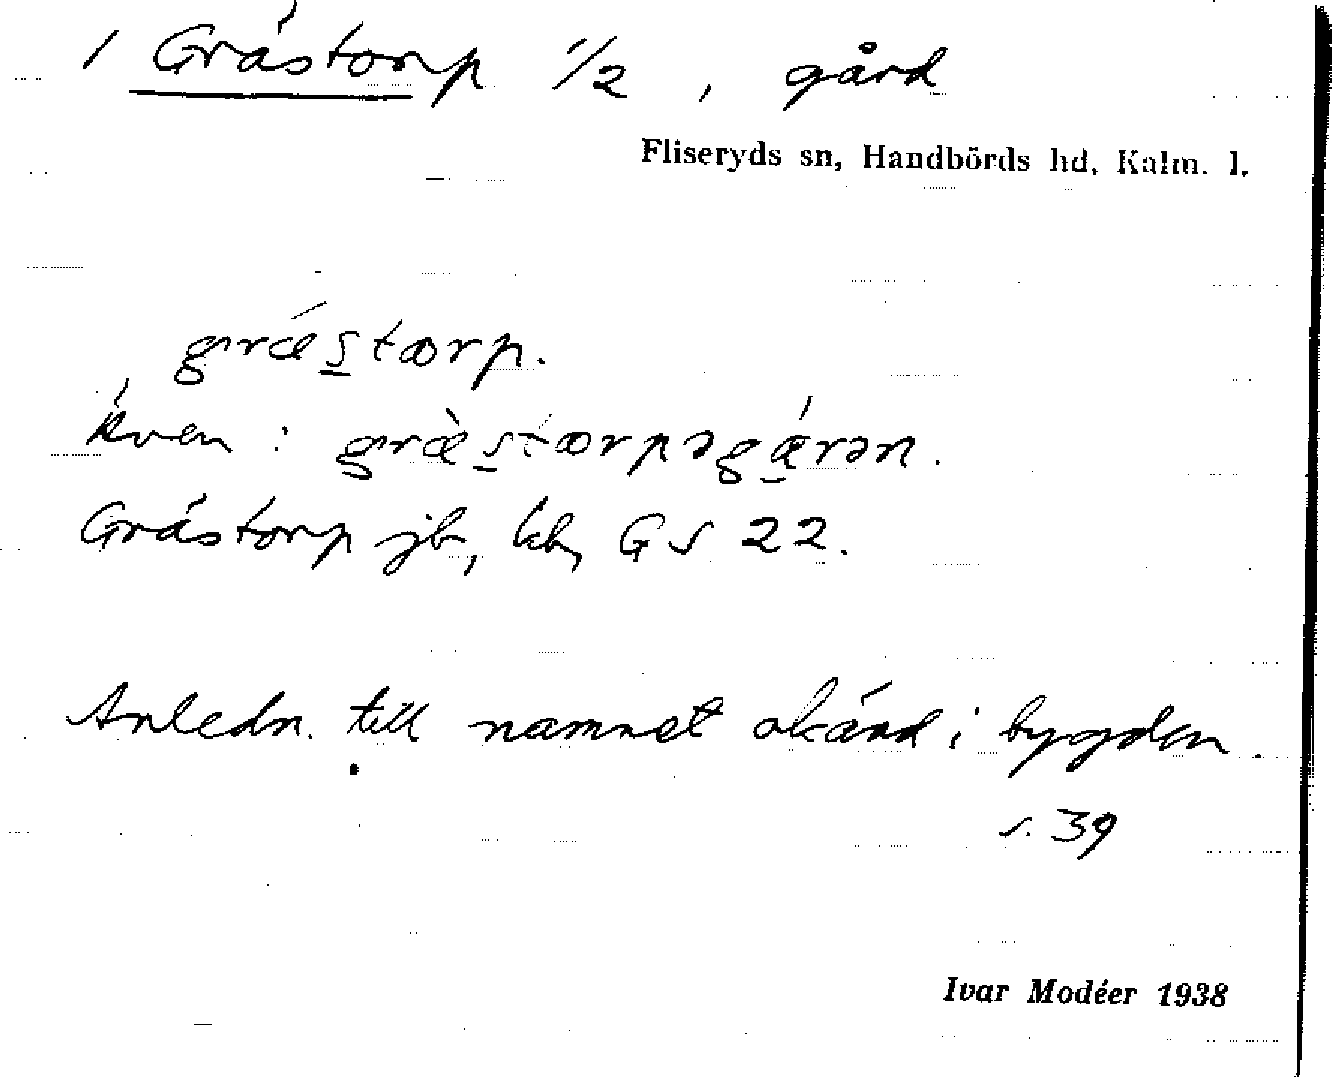 1 Grästorp 1/2, gård
Fliseryds sn, Handbörds hd, Kalm. l.
grǽstar̄p.
Även: græ̀stærpəgǽrən.
Grästorp jb, kb, GS 22.
Anledn. till namnet okänd i bygden.
s. 39
Ivar Modéer 1938